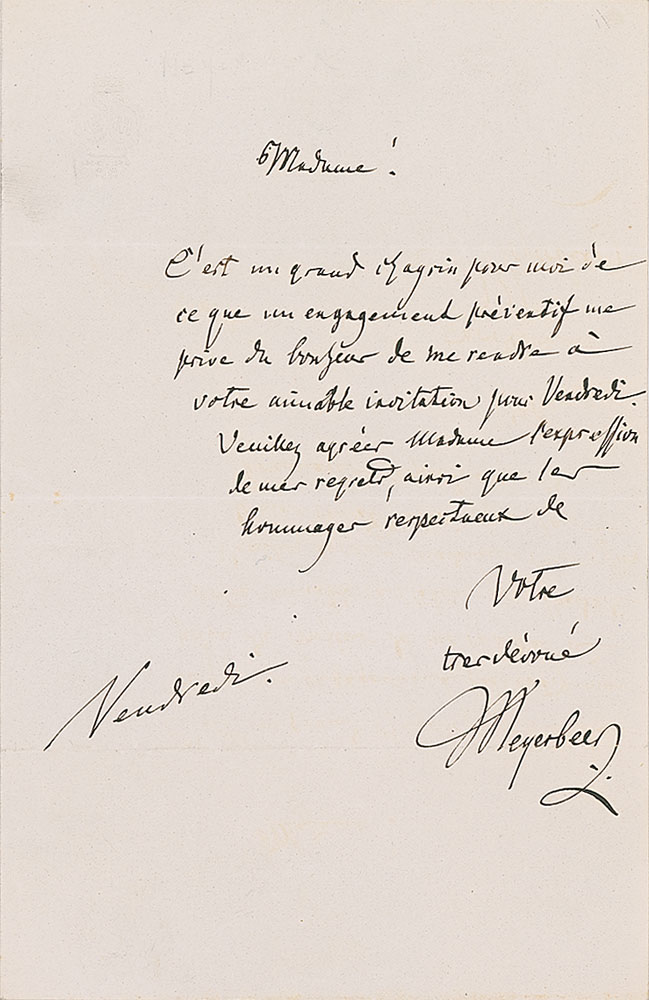 Madame!
C'est un grand chagrin pour moi de
ce que un engagement préventif me
prive du bonheur de me rendre à
votre aimable invitation pour Vendredi.
Veuillez agréer Madame l'expression
de mes regrets, ainsi que les
hommages respectueux de
Votre
tres dévoué
Meyerbeer
Vendredi.